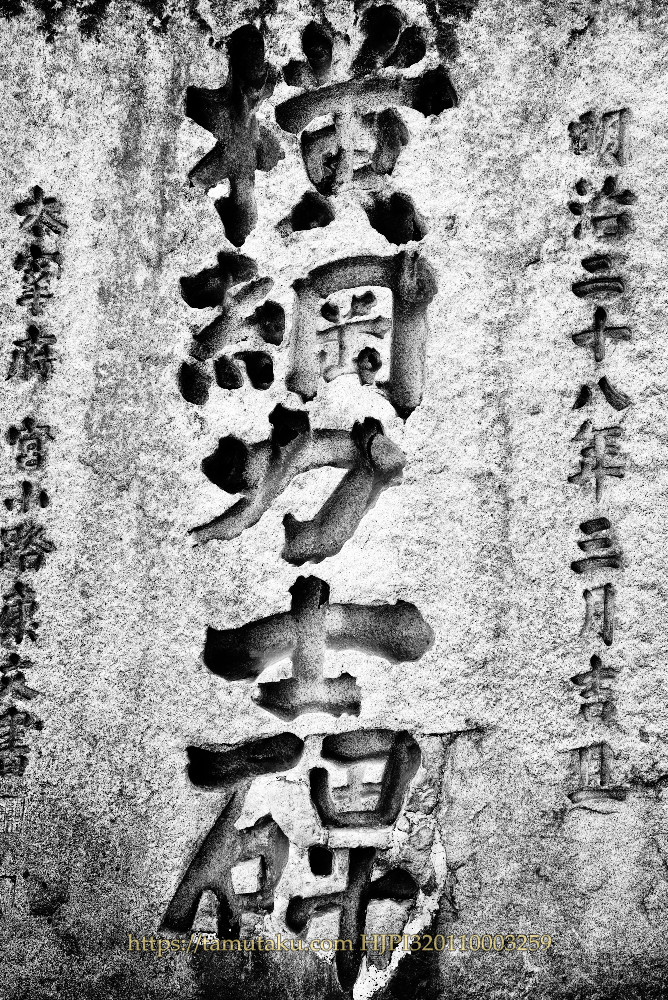 明治二十八年三月吉旦
横綱力士碑
太宰府 宮小路康文書
https://tamutaku.com HJPI320110003259